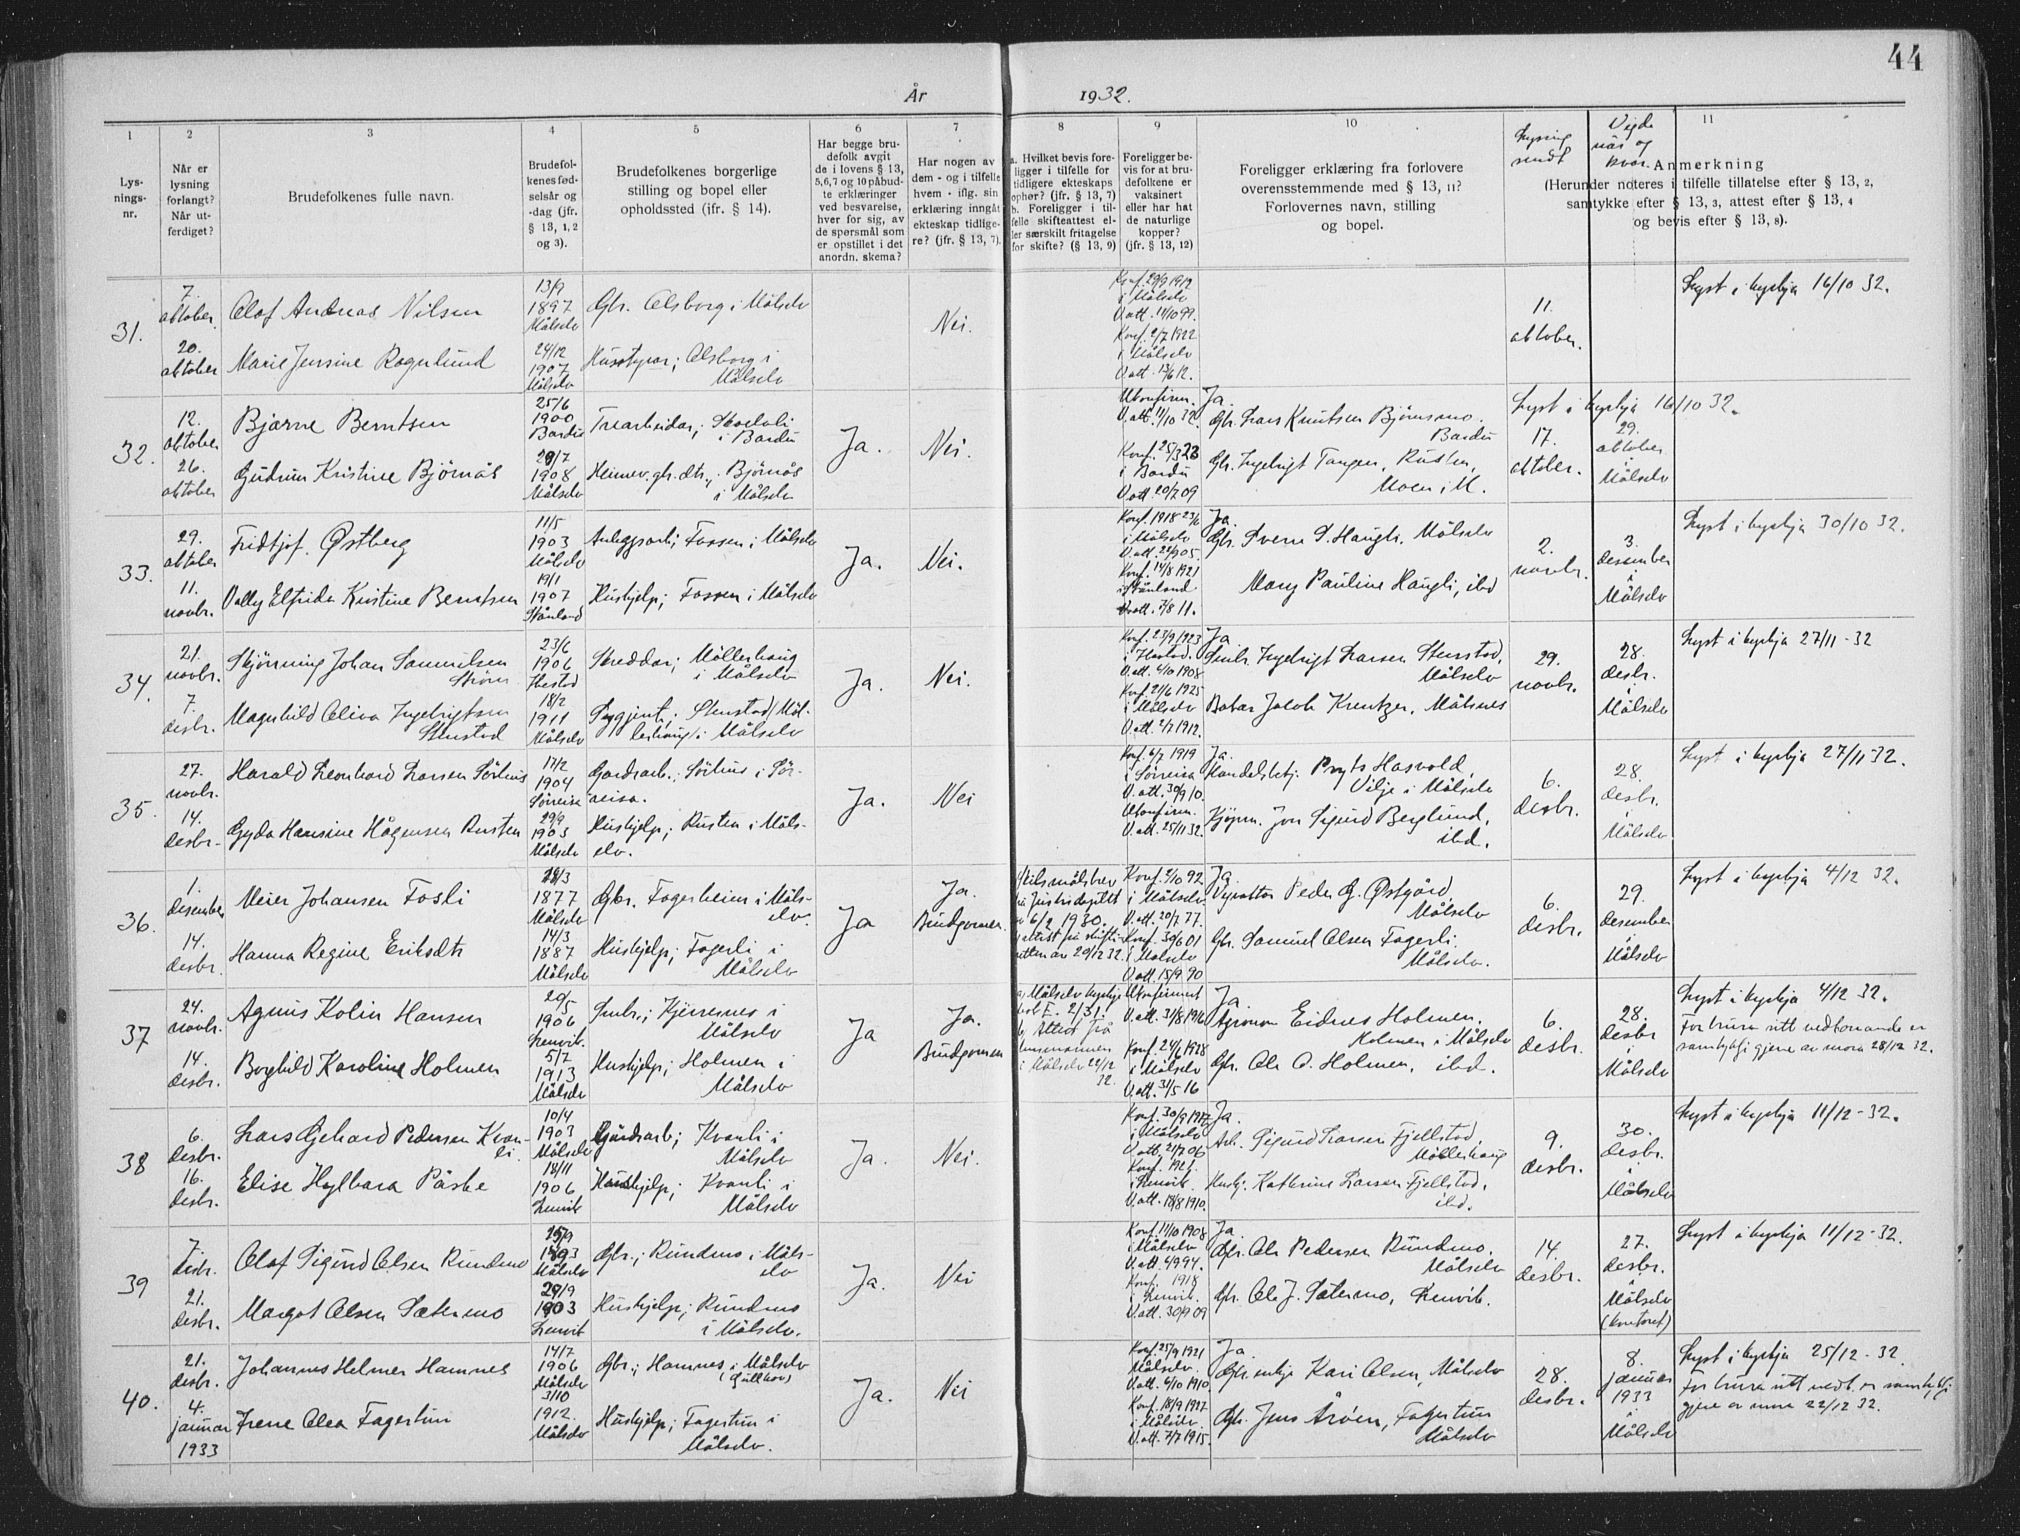 44
År 1932.
1
Lys-
nings-
nr.
2
Når er
lysning
forlangt?
Når ut-
ferdiget?
3
Brudefolkenes fulle navn.
4
Brudefol-
kenes fød-
selsår og
-dag (jfr.
§ 13, 1, 2
og 3).
5
Brudefolkenes borgerlige
stilling og bopel eller
opholdssted (jfr. § 14).
6
Har begge bru-
defolk avgit
de i lovens § 13,
5,6,7 og 10 påbud-
te erklæringer
ved besvarelse,
hver for sig, av
de spørsmål som
er opstillet i det
anordn. skema?
7
Har nogen av
dem - og i tilfelle
hvem - iflg. sin
erklæring inngått
ekteskap tidlige-
re? (jfr. § 13, 7).
8
a. Hvilket bevis fore-
ligger i tilfelle for
tidligere ekteskaps
ophør? (jfr. § 13, 7)
b. Foreligger i til-
felle skifteattest el-
ler særskilt fritagelse
for skifte? (§ 13, 9)
9
Foreligger be-
vis for at bru-
defolkene er
vaksinert
eller har hat
de naturlige
kopper?
(jfr. § 13, 12)
10
Foreligger erklæring fra forlovere
overensstemmende med § 13, 11?
Forlovernes navn, stilling
og bopel.
Lysning
sendt
Vigde
når og
kvar.
11
Anmerkning
(Herunder noteres i tilfelle tillatelse efter § 13, 2,
samtykke efter § 13, 3, attest efter § 13, 4
og bevis efter § 13, 8).
31.
7.
oktober.
20.
oktober
Olaf Andreas Nilsen
Marie Jensine Rognlund
13/9
1897
Målselv
24/12
1907
Målselv
Gbr. Olsborg i Målselv
Husstyrar; Olsborg i
Målselv
Nei.
Konf. 29/9 1912
i Målselv
V.att. 11/10 99.
Konf. 2/7 1922
i Målselv
11.
oktober.
Lyst i kyrkja 16/10 32.
32.
12.
oktober
26.
oktober
Bjarne Berntsen
Gudrun Kristine Bjørnås
25/6
1900
Bardu
1908
Målselv
Trearbeidar;
i Bardu
Heimev. gbr. dtr., Bjørnås
i Målselv
Ja.
Nei.
Ukonfirm.
V.att. 11/10 32.
Konf. 25/3 23
i Bardu
V.att. 20/7 09
Ja.
Gbr. Lars Knutsen Bjørnsmo.
Bardu
Gbr. Ingebrigt Tangen, Rusten,
Moen i M.
17.
oktober.
29.
oktober
i
Målselv
Lyst i kyrkja 16/10 32.
33.
29.
oktober
11.
novbr.
Fridtjof. Østberg
Vally Elfrida Kristine Berntsen
11/5
1903
Målselv
19/1
1907
Skånland
Anleggsarb; Fossen i Målselv
Hushjelp; Fossen i Målselv
Ja.
Nei.
Konf. 1918 23/6
i Målselv
Konf. 14/8 1921
i Skånland
V.att. 7/8 11.
Ja.
Gbr. Sverre S. Haugli. Målselv
Mary Pauline Haugli, ibd
2.
novbr.
3.
desember
i
Målselv
Lyst i kyrkja 30/10 32.
34.
21.
novbr.
7.
desbr.
Skjønning Johan Samuelsen
Strøm
Magnhild Oliva Ingebrigtsen
Stenstad
23/6
1906
18/2
1911
Målselv
Skreddar; Møllerhaug
i Målselv
Sygjente; Stenstad/Møl-
lerhaug/i Målselv
Ja.
Nei.
Konf. 23/9 1923
V.att. 4/10 1908
Konf. 21/6 1925
i Målselv
V.att. 2/7 1912.
Ja
Småbr. Ingebrigt Larsen Stenstad,
Målselv
Bakar Jacob Kreutzer, Målsnes
29.
novbr.
28.
desbr.
i
Målselv
Lyst i kyrkja 27/11-32
35.
27.
novbr.
14.
desbr.
Harald Leonhard Larsen Sørhus
Gyda Hansine Hågensen Rusten
17/2
1904
Sørreisa
29/9
1903
Målselv
Gardsarb.; Sørhus i Sør-
reisa.
Hushjelp; Rusten i Måls-
elv.
Ja.
Nei
Konf. 6/7 1919
i Sørreisa
V.att. 30/9 10.
Ukonfirm.
V.att. 25/11 32.
Ja.
Handelsbetj. Pryts Hasvold,
Vilje i Målselv
Kjøpm. Jon Sigurd Berglund,
ibd.
6.
desbr.
28.
desbr.
i
Målselv
Lyst i kyrkja 27/11-32.
36.
1.
desember
14.
desbr.
Meier Johansen Fosli
Hanna Regine Eriksdtr
1877
Målselv
14/3
1887
Målselv
Gbr. Fagerheim i Måls-
elv.
Hushjelp; Fagerli i
Målselv
Ja
Ja.
Brudgomen
Skilsmålsbrev
6/2 1930.
attest på skifte-
retten av 20/12 32.
Konf. 2/10 92
i Målselv
V.att. 20/7 77.
Konf. 30/6 01
i Målselv
V.att. 15/9 90
Ja.
Vegvakter Peder G. Østgård,
Målselv
Gbr. Samuel Olsen Fagerli.
Målselv.
6.
desbr.
29.
desember
i
Målselv
Lyst i kyrkja 4/12 32.
37
24.
novbr.
14.
desbr.
Agnus Kolin Hansen
Borghild Karoline Holmen
20/5
1906
Lenvik.
5/7
1913
Målselv
Småbr.; Kjerresnes i
Målselv
Hushjelp; Holmen i
Målselv
Ja
Ja.
Brudgomen
a, Målselv kyrkje-
bok E. 2/31.
b, Attest frå
lensmannen
i Målselv 22/12
32.
Ukonfirmert
V.att. 31/8 1916
Konf. 24/6 1928
i Målselv
V.att. 31/5 16
Ja.
Agronom Eidnes Holmen.
Holmen i Målselv
Gbr. Ole O. Holmen, ibd.
6.
desbr.
28.
desbr
i
Målselv
Lyst i kyrkja 4/12 32.
For brura sitt vedkomande er
samtykkji gjeve av mora 28/12 32.
38
6.
desbr.
16.
desbr.
Lars Gerhard Pedersen Kvan-
li.
Elise Hylbora Påske
10/4
1903
Målselv
18/11
1906
Lenvik
Gardsarb; Kvanli i
Målselv
Hushjelp; Kvanli i
Målselv
Ja.
Nei.
Konf. 30/9 1917
i Målselv
V.att. 21/7 06
Konf. 1921.
i Lenvik.
V.att. 18/8 1910.
Ja.
Arb. Sigurd Larsen Fjellstad.
Møllerhaug
Hushj. Kathrine Larsen Fjellstad.
ibd.
9.
desbr.
30.
desbr.
i
Målselv
Lyst i kyrkja 11/12-32.
39
7.
desbr.
21.
desbr.
Olaf Sigurd Olsen Rundmo
Margot Olsen Sætermo
1893
Målselv
29/9
1903
Lenvik
Gbr.; Rundmo i Måls-
elv
Hushjelp; Rundmo
i Målselv.
Ja.
Nei
Konf. 11/10 1908
i Målselv
V.att. 4/9 94.
Konf. 1918
i Lenvik.
V.att. 30/9 09
Ja.
Gbr. Ole Pedersen Rundmo.
Målselv
Gbr. Ole J. Sætermo, Lenvik.
14.
desbr.
27.
desbr.
i
Målselv
(kontoret)
Lyst i kyrkja 11/12-32.
40.
21.
desbr.
4.
januar
1933
Johannes Helmer Hamnes
Irene Olea Fagertun
14/7
1906
Målselv
3/10
1912.
Målselv
Gbr.; Hamnes i Målselv
(Gullhav)
Hushjelp; Fagertun i
Målselv.
Ja.
Nei
Konf. 25/9 1921
Målselv.
V.att. 4/10 1910.
Konf. 18/9 1927
i Målselv.
V.att. 7/7 1915.
Ja
Gbr. enkje Kari Olsen, Målselv
Gbr. Jens Årøen, Fagertun
Målselv
28.
desbr.
8.
januar
1933
i
Målselv
Lyst i kyrkja 25/12-32.
For brura sitt vedk. er samtykkji
gjeve av mora 22/12 32.